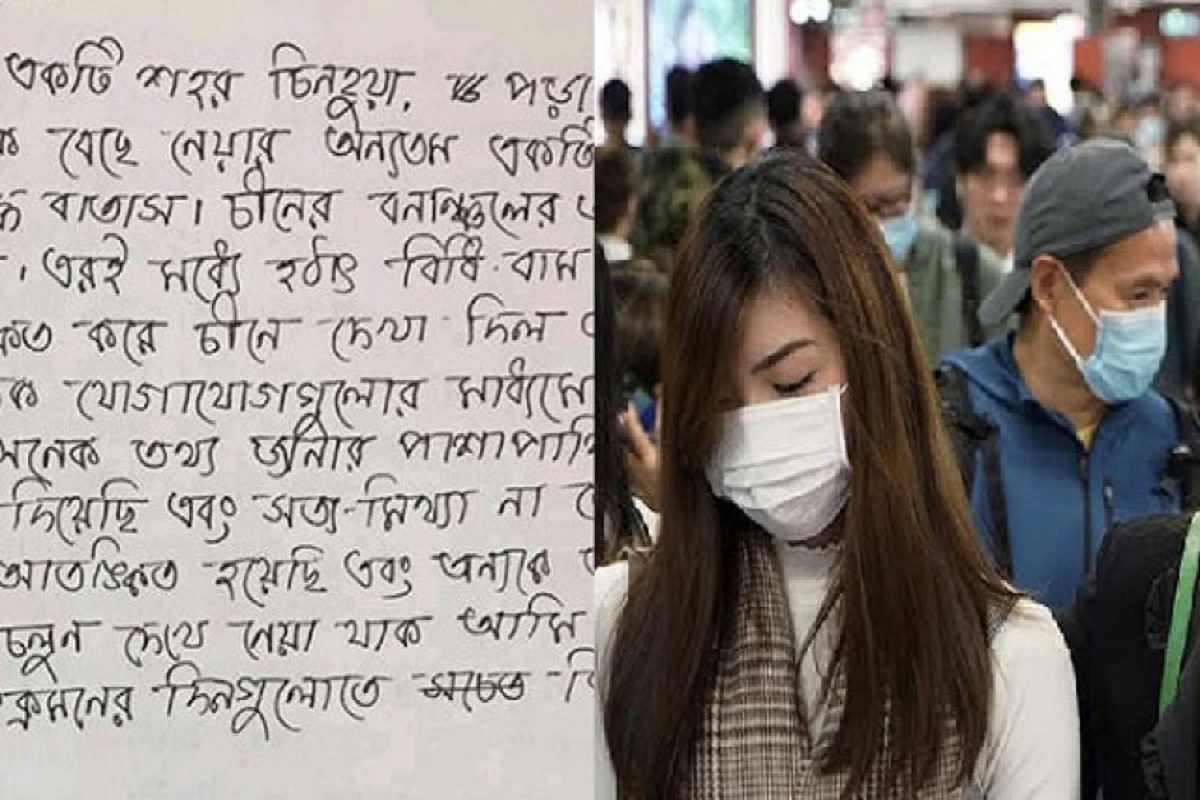 একটি শহর চিনহুয়া, পড়া
বেছে নেয়ার অন্যতম একটি
বাতাস। চীনের বনাঞ্চলের
। এরই মধ্যে হঠাৎ বিধি বাম
করে চীনে দেখা দিল
ক যোগাযোগগুলোর মাধ্যমে
অনেক তথ্য জানার পাশাপাশি
দিয়েছি এবং সত্য-মিথ্যা না
আতঙ্কিত হয়েছি এবং অন্যকে
চলুন দেখে নেয়া যাক আমি
ক্রমনের দিনগুলোতে